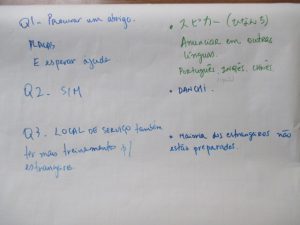 Q1- Procurar um abrigo.
E esperar ajuda
Q2. SIM
Q3. LOCAL DE SERVIÇO também
ter mais treinamento p/
estrangeiro
Anunciar em outras
línguas.
Português, inglês, chinês
• DANCHI.
• Maioria dos estrangeiros não
estão preparados.